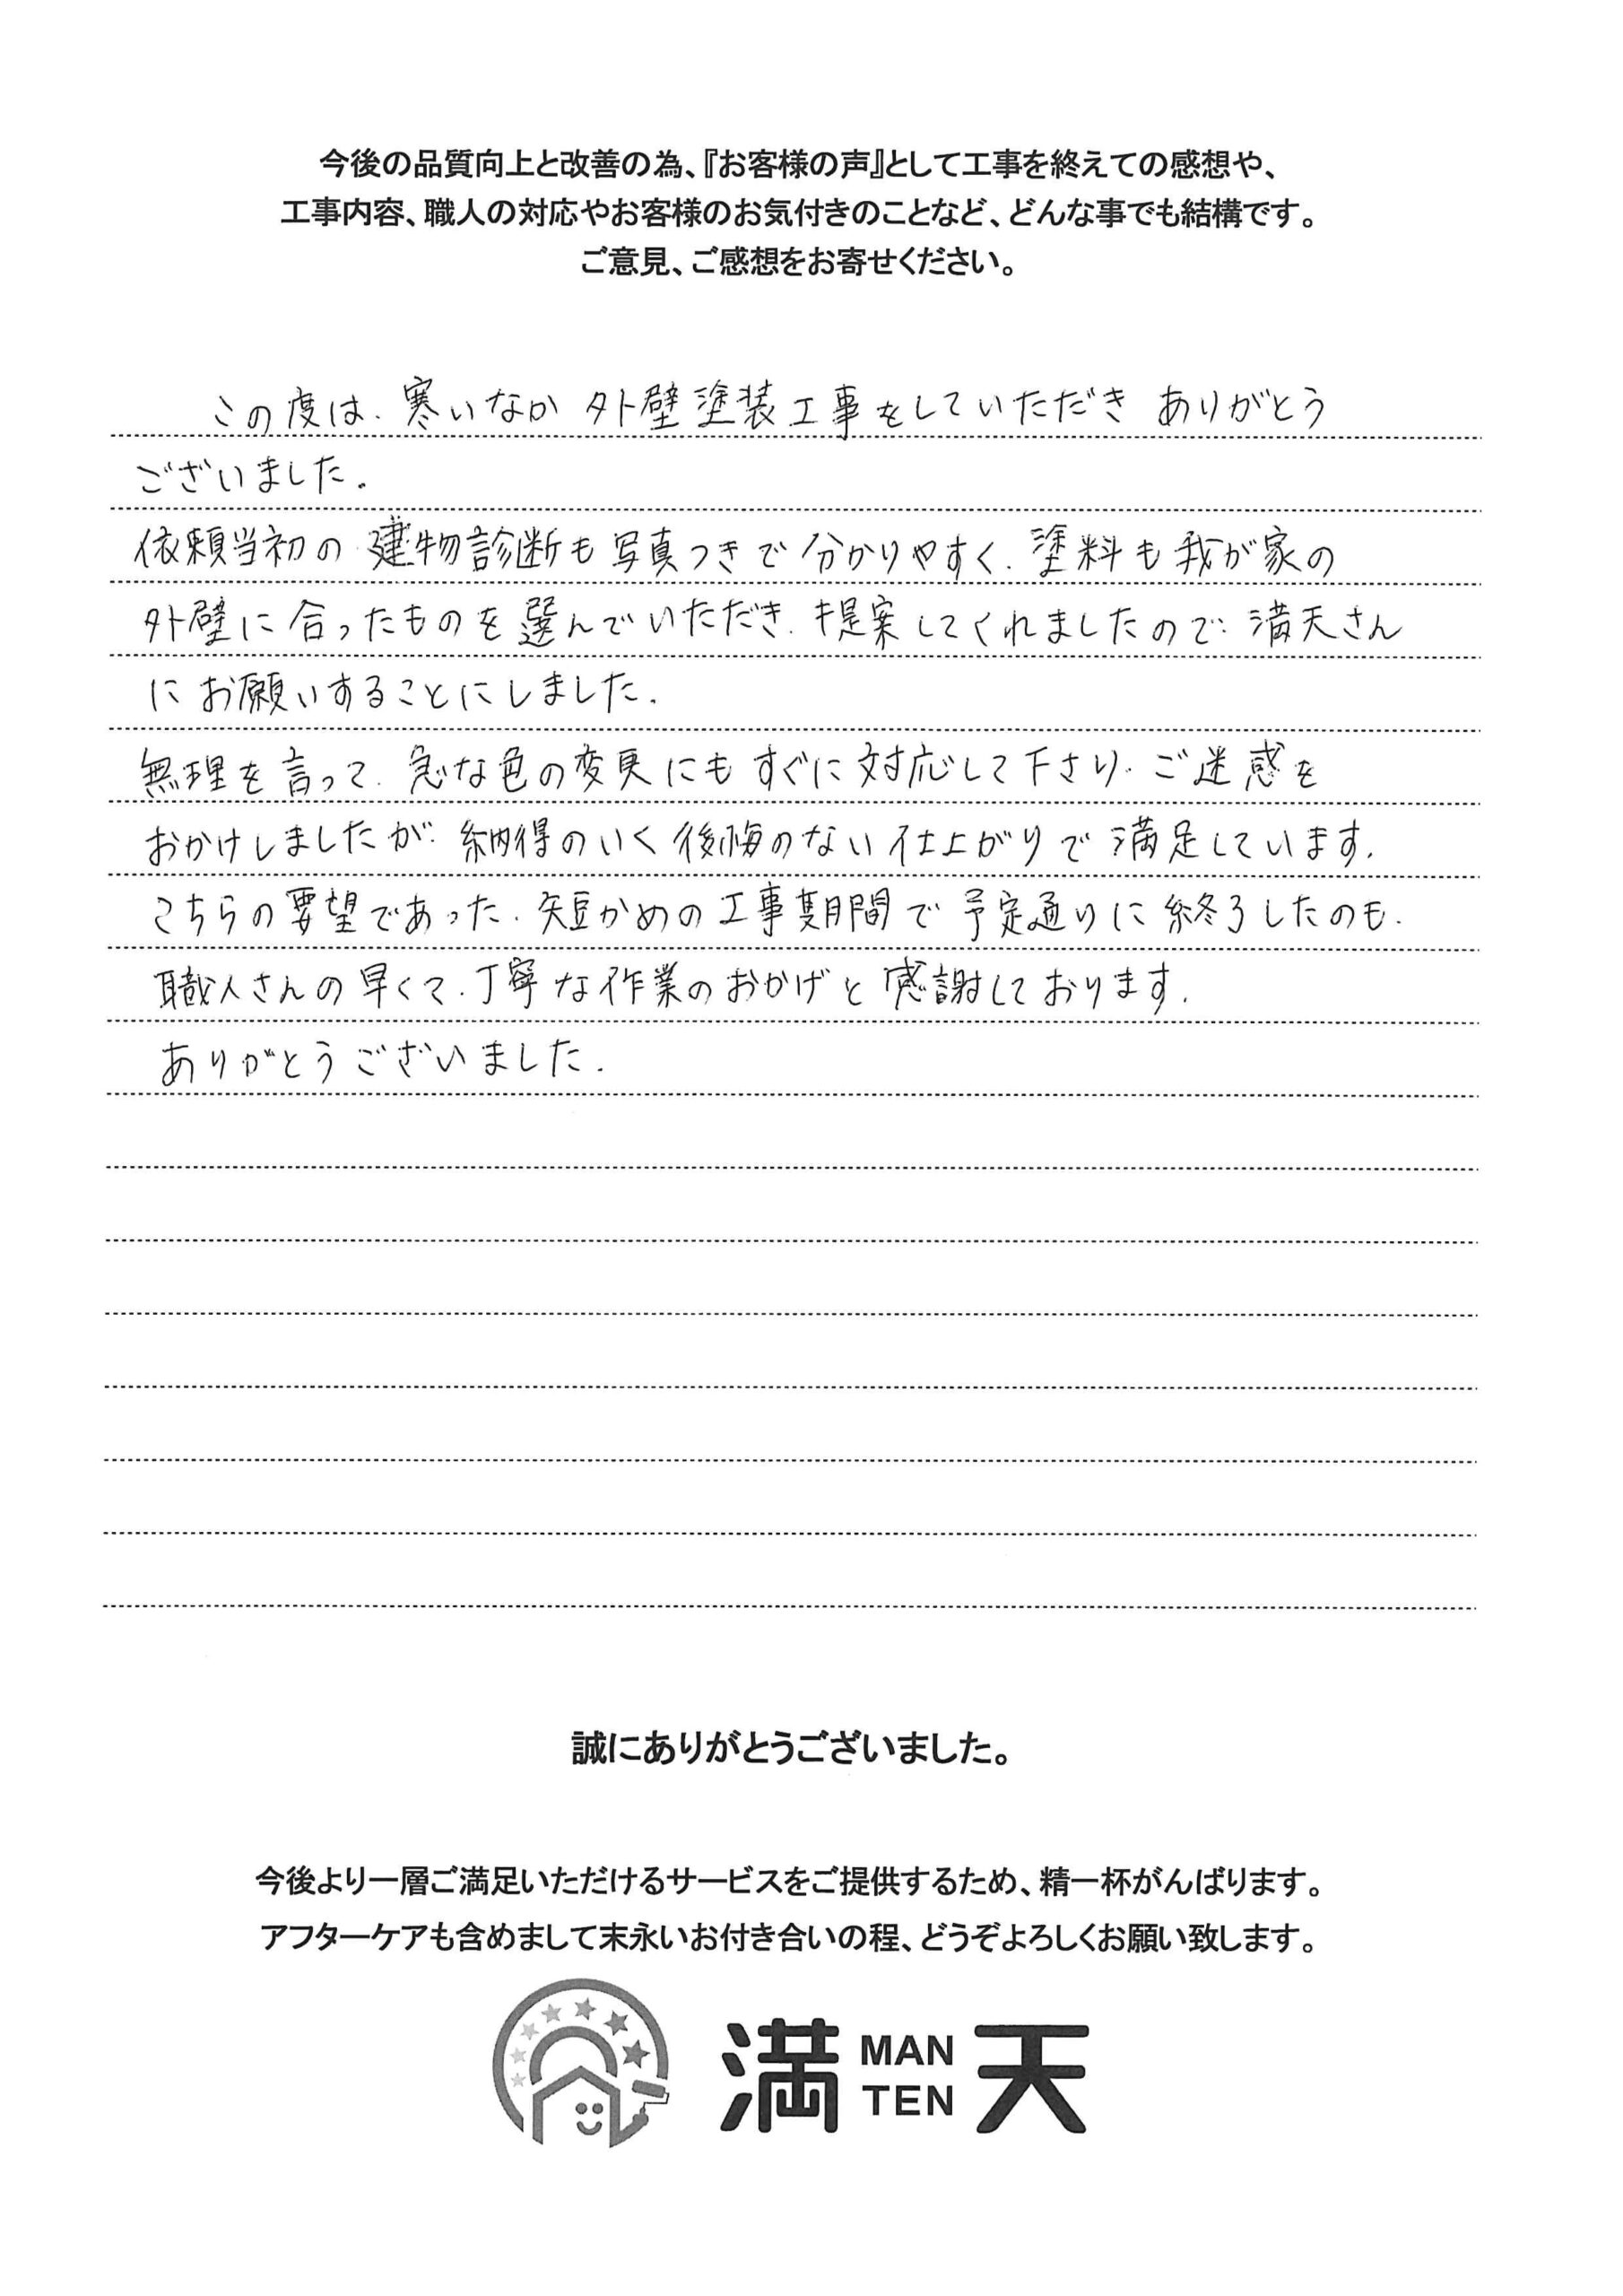 今後の品質向上と改善の為、『お客様の声』として工事を終えての感想や、
工事内容、職人の対応やお客様のお気付きのことなど、どんな事でも結構です。
ご意見、ご感想をお寄せください。
この度は、寒いなか 外壁塗装工事をしていただき ありがとう
ございました。
依頼当初の建物診断も写真つきで分かりやすく、塗料も我が家の
外壁に合ったものを選んでいただき、提案してくれましたので、満天さん
にお願いすることにしました。
無理を言って、急な色の変更にもすぐに対応して下さり、ご迷惑を
おかけしましたが、納得のいく後悔のない仕上がりで満足しています。
こちらの要望であった、短かめの工事期間で予定通りに終了したのも、
職人さんの早くて、丁寧な作業のおかげと感謝しております。
ありがとうございました。
誠にありがとうございました。
今後より一層ご満足いただけるサービスをご提供するため、精一杯がんばります。
アフターケアも含めまして末永いお付き合いの程、どうぞよろしくお願い致します。
満天 MAN TEN